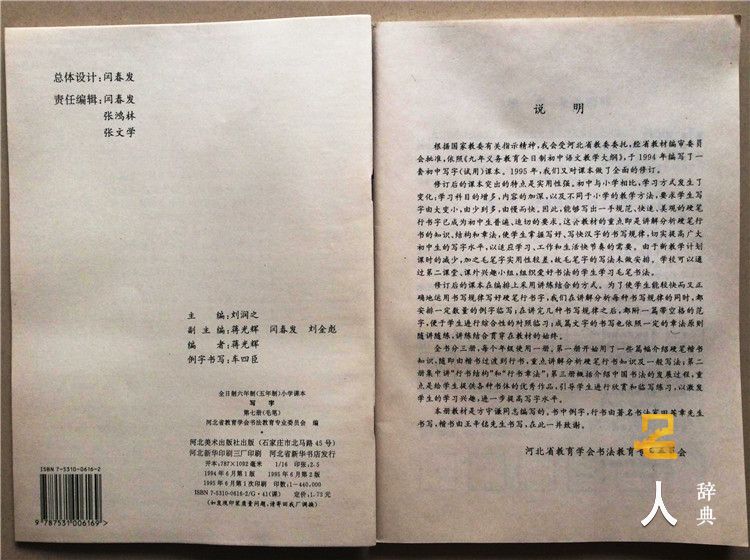 总体设计：闵春发
责任编辑：闵春发
张鸿林
张文学
主编：刘润之
副主编：蒋光辉 闵春发 刘金彪
编者：蒋光辉
例字书写：车四臣
全日制六年制（五年制）小学课本
写字
第七册（毛笔）
河北省教育学会书法教育专业委员会 编
河北美术出版社出版（石家庄市北马路45号）
河北新华印刷三厂印刷 河北省新华书店发行
开本：787×1092毫米 1/16 印张：2.5
1994年6月第1版 1995年6月第2版
1995年6月第1次印刷 印数：1—440,000
ISBN 7-5310-0616-2/G·41(课) 定价：1.75元
（如发现印装质量问题，请寄回我厂调换）
ISBN 7-5310-0616-2
9 787531 006169 >
说 明
根据国家教委有关指示精神，我会受河北省教委委托，经省教材编审委员
会批准，依照《九年义务教育全日制初中语文教学大纲》，于1994年编写了一
套初中写字（试用）课本。1995年，我们又对课本做了全面的修订。
修订后的课本突出的特点是实用性强。初中与小学相比，学习方式发生了
变化；学习科目的增多，内容的加深，以及不同于小学的教学方法，要求学生写
字由大变小，由少到多，由慢而快。因此，能够写出一手规范、快速、美观的硬笔
行书字已成为初中生普遍、迫切的要求。这套教材的重点即是讲解分析硬笔行
书的知识、结构和章法，使学生掌握写好、写快汉字的书写规律，切实提高广大
初中生的写字水平，以适应学习、工作和生活快节奏的需要。由于新教学计划
课时的减少，加之毛笔字实用性较差，故毛笔字的写法未做安排。学校可以通
过第二课堂、课外兴趣小组，组织爱好书法的学生学习毛笔书法。
修订后的课本在编排上采用讲练结合的方式。为了使学生能较快而又正
确地运用书写规律写好硬笔行书字，我们在讲解分析每种书写规律的同时，都
安排一定数量的例字临写；在讲完几种书写规律之后，都附一篇带空格的范
字，便于学生进行综合性的对照临习；成篇文字的书写也依照一定的章法原则
随讲随练，讲练结合贯穿在教材的始终。
全书分三册，每个年级使用一册。第一册开始用了一些篇幅介绍硬笔楷书
知识，随即由楷书过渡到行书，重点讲解分析硬笔行书知识及一般写法；第二
册集中讲“行书结构”和“行书章法”；第三册概括介绍中国书法的发展过程，重
点是给学生提供各种书体的优秀作品，引导学生进行欣赏和临写练习，以激发
学生的学习兴趣，进一步提高写字水平。
本册教材是方守谦同志编写的。书中例字，行书由著名书法家田英章先生书
写，楷书由王千佑先生书写，在此一并致谢。
河北省教育学会书法教育专业委员会
人 辞典